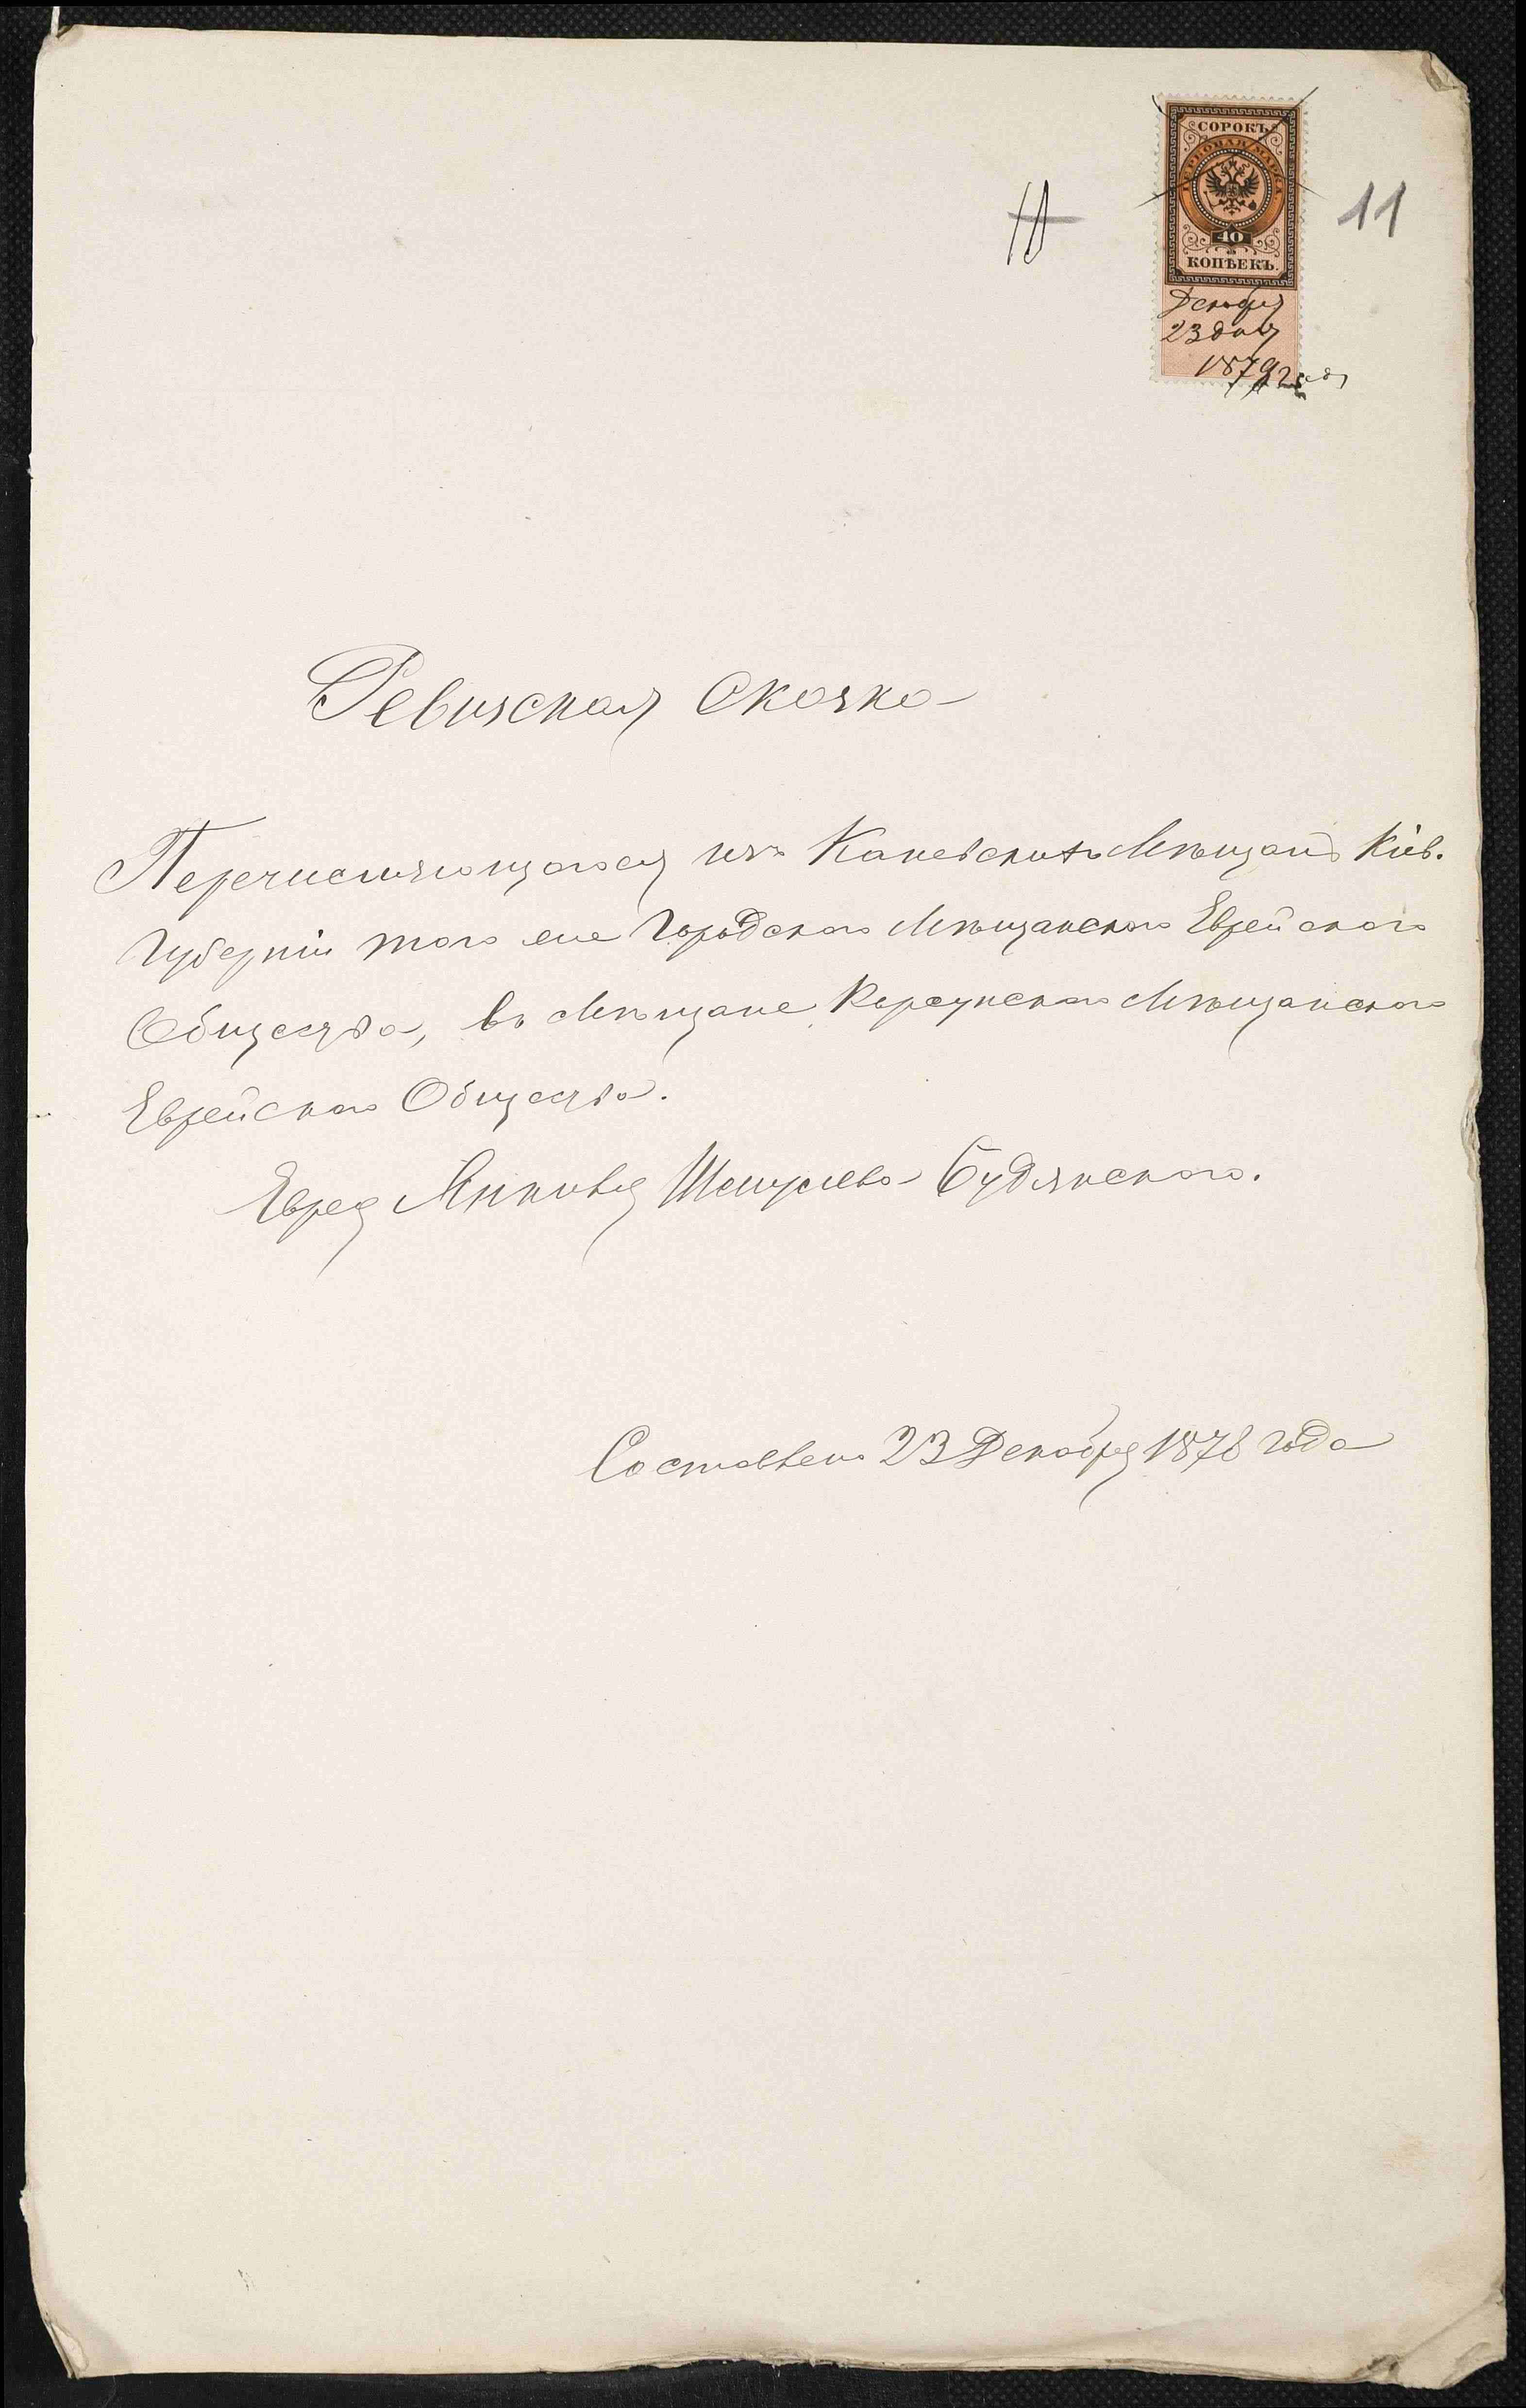 11
СОРОКЪ
ГЕРБОВАЯ МАРКА
40
КОПѢЕКЪ.
Декабря
23 дня
1879 года
Ревизская Сказка
Перечисляющагося изъ Каневскихъ Мѣщанъ Кіев.
Губерніи того же Городскаго Мѣщанскаго Еврейскаго
Общества, въ Мѣщане Корсунскаго Мѣщанскаго
Еврейскаго Общества.
Еврея Янкеля Шмулева Будянскаго.
Составлена 23 Декабря 1878 года